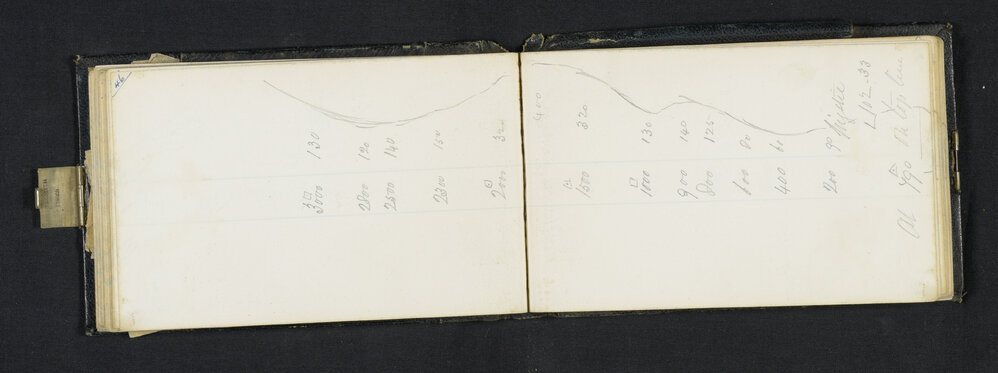 46
3000 130
2800 120
2500 140
2300 150
2000 320
400
1500 320
1000 130
900 140
800 125
600 80
400 60
200 90
L 102.33
At 490 the top line